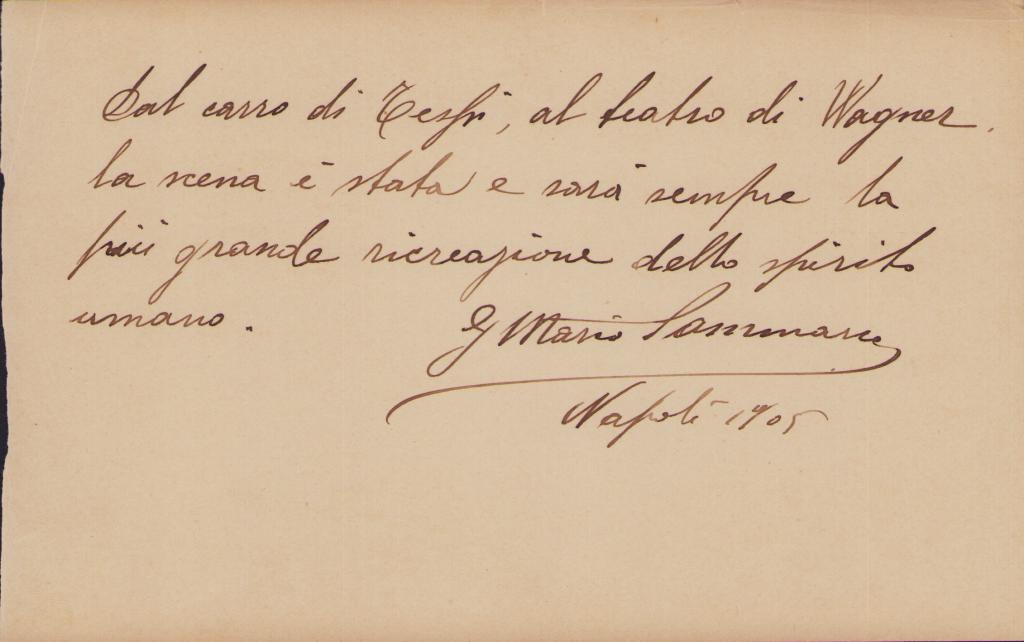 Dal carro di Tespi, al teatro di Wagner.
la scena è stata e sarà sempre la
più grande ricreazione dello spirito
umano.
G Mario Sammarco
Napoli 1905